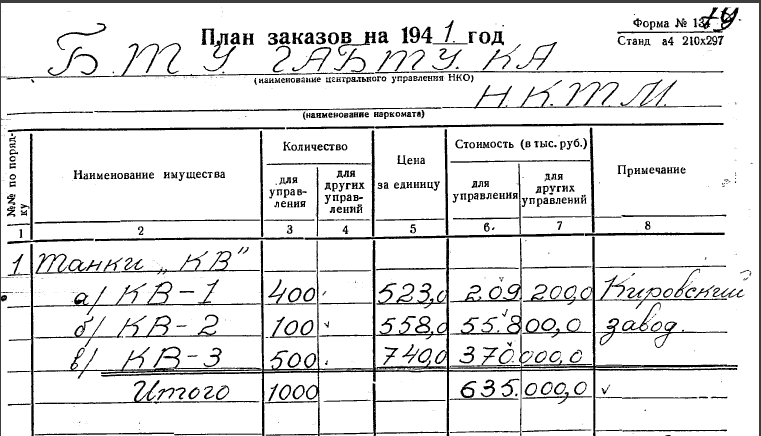 План заказов на 1941 год
Форма № 134
Станд а4 210х297
Б.Т.У. ГАБТУ. КА
(наименование центрального управления НКО)
Н.К.Т.М.
(наименование наркомата)
№№ по порядку
Наименование имущества
Количество
для управления
для других управлений
Цена за единицу
Стоимость (в тыс. руб.)
для управления
для других управлений
Примечание
1 2 3 4 5 6. 7 8
1 Танки „КВ"
а/ КВ-1 400 523,0 209 200,0 Кировский
б/ КВ-2 100 558,0 55.800,0 завод.
в/ КВ-3 500 740,0 370.000,0
Итого 1000 635.000,0